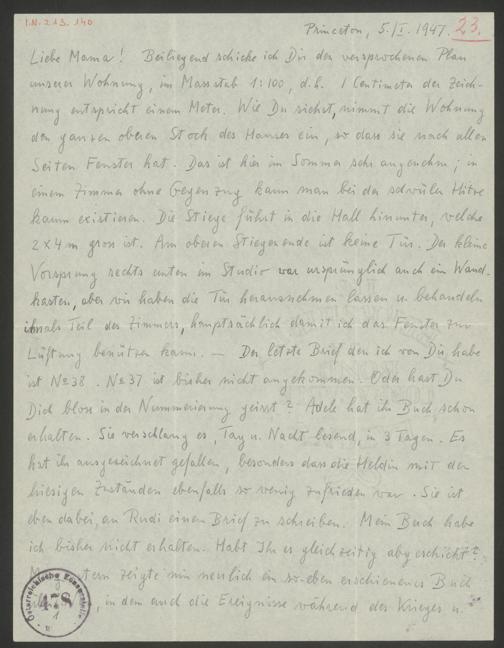 I.N. 213.140
Princeton, 5./I. 1947. 23.
Liebe Mama! Beiliegend schicke ich Dir den versprochenen Plan
unserer Wohnung, im Massstab 1:100, d.h. 1 Centimeter der Zeich-
nung entspricht einem Meter. Wie Du siehst, nimmt die Wohnung
den ganzen oberen Stock des Hauses ein, so dass sie nach allen
Seiten Fenster hat. Das ist hier im Sommer sehr angenehm; in
einem Zimmer ohne Gegenzug kann man bei der schwülen Hitze
kaum existieren. Die Stiege führt in die Hall hinunter, welche
2x4 m gross ist. Am oberen Stiegenende ist keine Tür. Der kleine
Vorsprung rechts unten im Studio war ursprünglich auch ein Wand-
kasten, aber wir haben die Tür herausnehmen lassen u. behandeln
ihn als Teil des Zimmers, hauptsächlich damit ich das Fenster zur
Lüftung benützen kann. — Der letzte Brief den ich von Dir habe
ist No 38. No 37 ist bisher nicht angekommen. Oder hast Du
Dich bloss in der Nummerierung geirrt? Adele hat ihr Buch schon
erhalten. Sie verschlang es, Tag u. Nacht lesend, in 3 Tagen. Es
hat ihr ausgezeichnet gefallen, besonders dass die Heldin mit den
hiesigen Zuständen ebenfalls so wenig zufrieden war. Sie ist
eben dabei, an Rudi einen Brief zu schreiben. Mein Buch habe
ich bisher nicht erhalten. Habt Ihr es gleichzeitig abgeschickt?
zeigte mir neulich ein so-eben erschienenes Buch
, in dem auch die Ereignisse während des Krieges u.
478
1